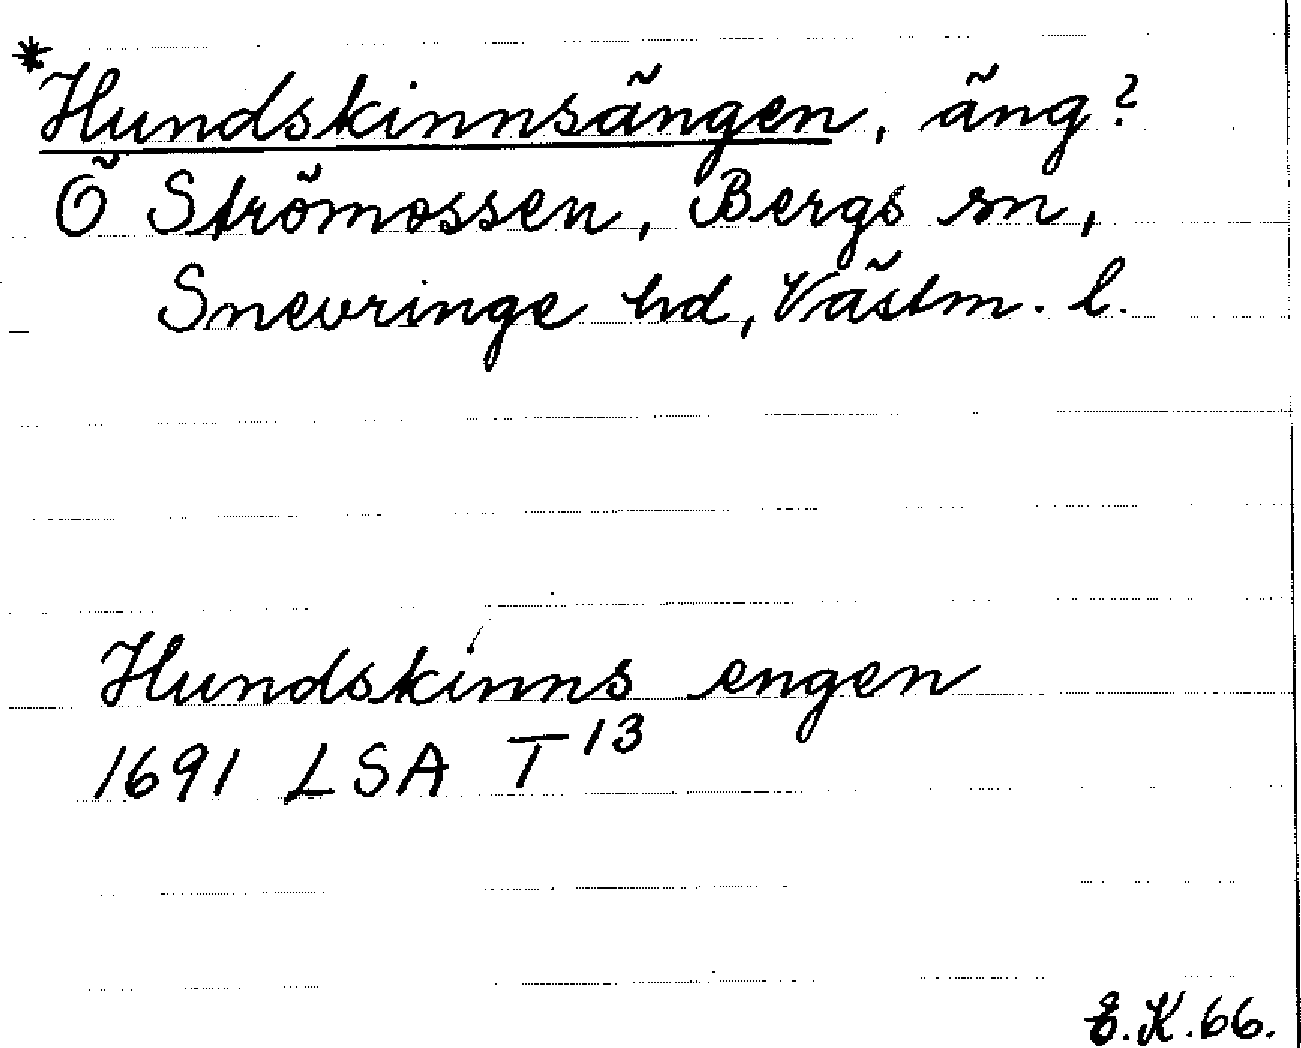 *Hundskinnsängen, äng?
Ö Strömossen, Bergs sn,
Snevringe hd, Västm. l.
Hundskinns engen
1691 LSA T 13
E.K.66.